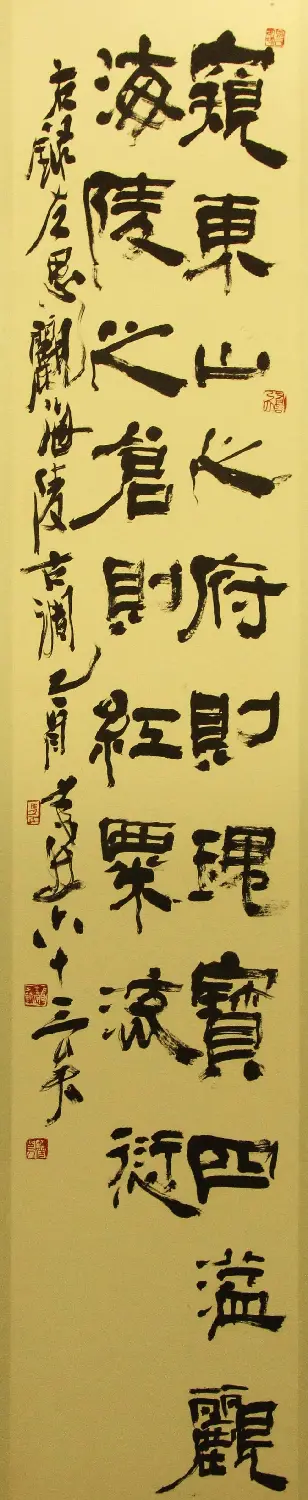 窺東山之府則瑰寶四溢觀
海陵之倉則紅粟流衍
右録左思觀海陵古澗乙酉六十三叟